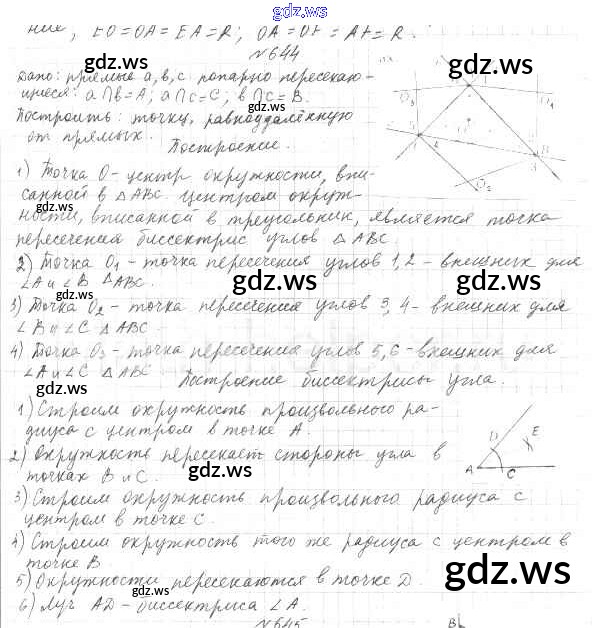 gdz.ru
них, EO=OA=EA=R; OA=OF=AF=R.
№644
Дано: прямые a, b, c попарно пересекаю-
щиеся: a∩b=A; a∩c=C; b∩c=B.
Построить: точку, равноудалённую
от прямых.
Построение.
1) Точка O - центр окружности, впи-
санной в △ABC. Центром окруж-
ности, вписанной в треугольник, является точка
пересечения биссектрис углов △ABC.
2) Точка O1 - точка пересечения углов 1,2 - внешних для
∠A и ∠B △ABC.
3) Точка O2 - точка пересечения углов 3,4 - внешних для
∠B и ∠C △ABC
4) Точка O3 - точка пересечения углов 5,6 - внешних для
∠A и ∠C △ABC
Построение биссектрисы угла.
1) Строим окружность произвольного ра-
диуса с центром в точке A.
2) Окружность пересекает стороны угла в
точках B и C.
3) Строим окружность произвольного радиуса с
центром в точке C.
4) Строим окружность того же радиуса с центром в
точке B
5) Окружности пересекаются в точке D.
6) Луч AD - биссектриса ∠A.
№645
O3
A
B
O2
D
E
A
C
B
gdz.ru
gdz.ru
gdz.ru
gdz.ru
gdz.ru
gdz.ru
gdz.ru
gdz.ru
gdz.ru